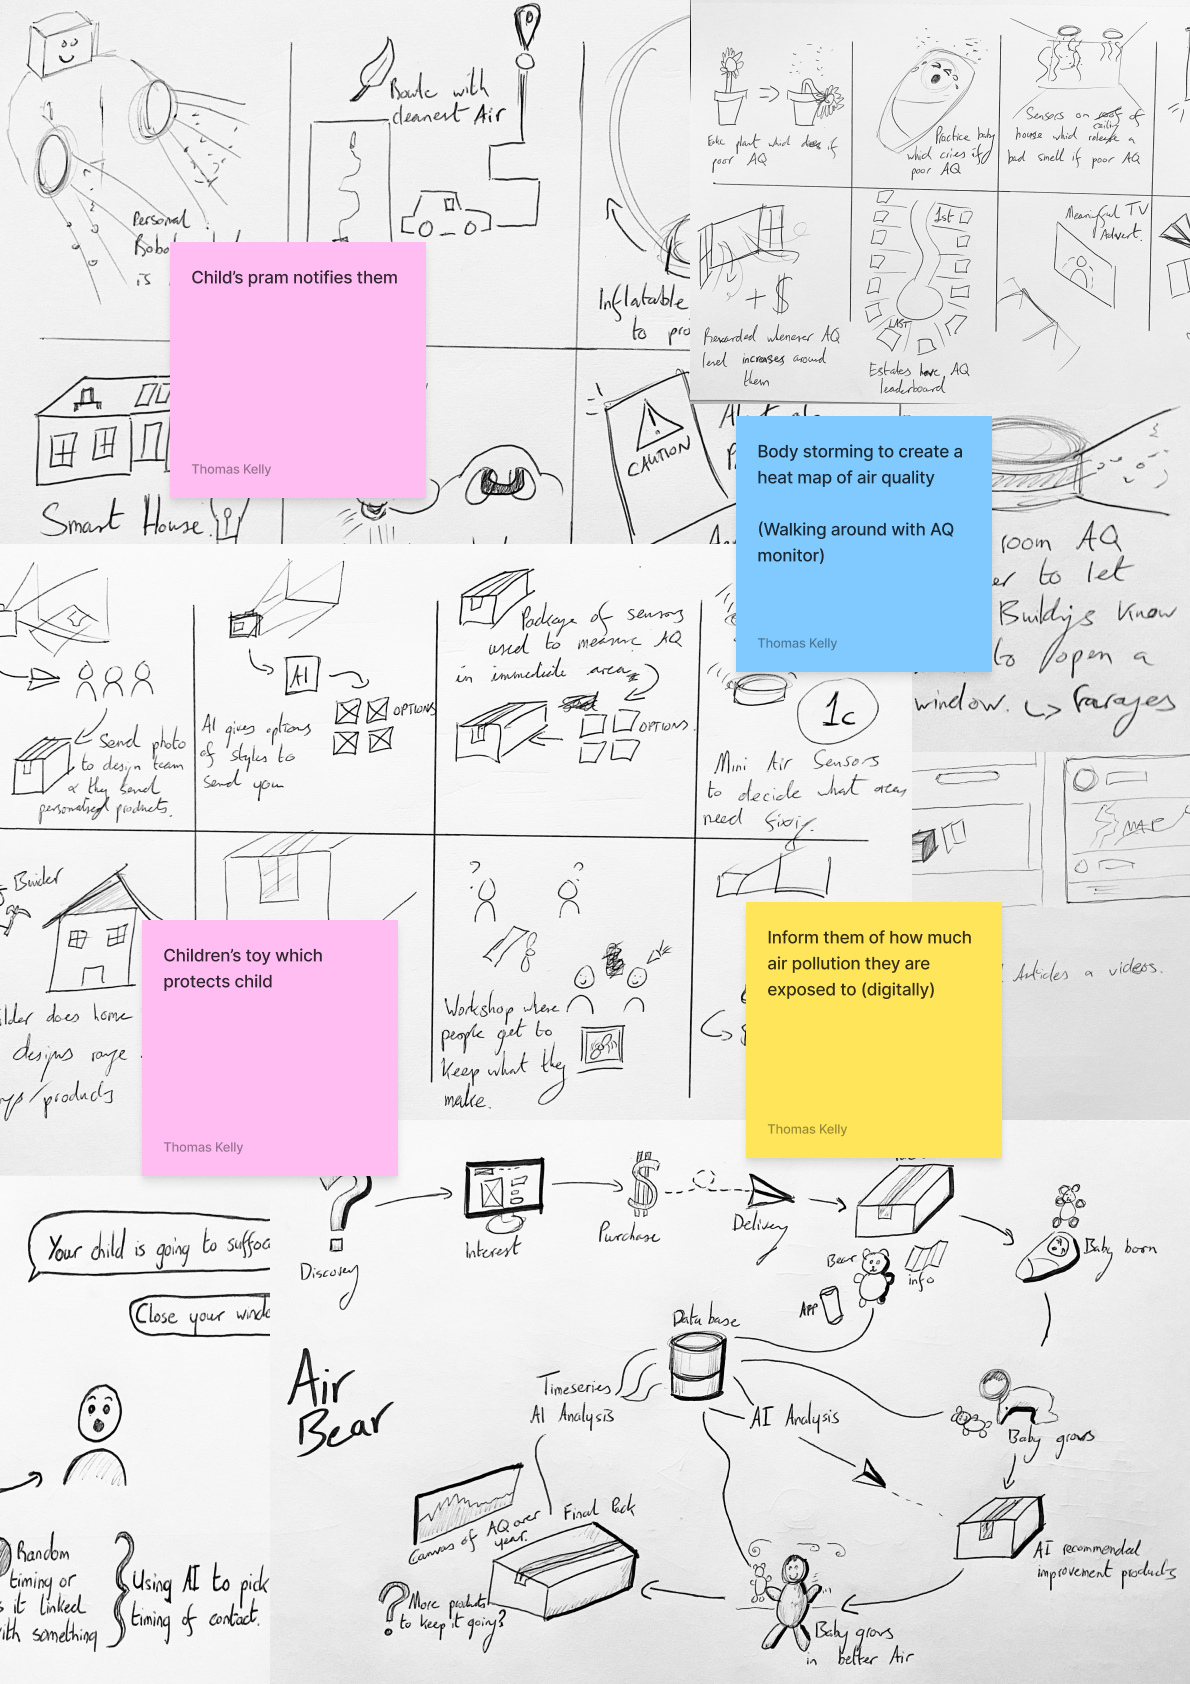 Route with
cleanest Air
Personal
is
Inflatable
to
Smart House.
CAUTION
Child's pram notifies them
Thomas Kelly
plant which does if
poor AQ
Practice baby
which cries if
poor AQ
Sensors on
ceiling
house which release a
bad smell if poor AQ
+ $
Rewarded whenever AQ
level increases around
them
1st
LAST
Estates have AQ
leaderboard
Meaningful TV
Advert.
Body storming to create a
heat map of air quality
(Walking around with AQ
monitor)
Thomas Kelly
room AQ
to let
Buildings know
to open a
window. Garages
Send photo
to design team
& they send
personalised products.
AI
OPTIONS
AI gives options
of styles to
send you
Package of sensors
used to measure AQ
in immediate area
OPTIONS.
1c
Mini Air Sensors
to decide what areas
need fixing.
MAP
Articles & videos.
Builder
does home
designs range
/products
Children's toy which
protects child
Thomas Kelly
Workshop where
people get to
keep what they
make.
Inform them of how much
air pollution they are
exposed to (digitally)
Thomas Kelly
Your child is going to suffoc
Close your windo
Random
timing or
is it linked
with something
Using AI to pick
timing of contact.
Air
Bear
?
Discovery
Interest
$
Purchase
Delivery
Bear
info
APP
Baby born
Database
Timeseries
AI Analysis
AI Analysis
Baby grows
AI recommended
improvement products
Baby grows
in better Air
Final Pack
Canvas of AQ over
year.
? More products
to keep it going?